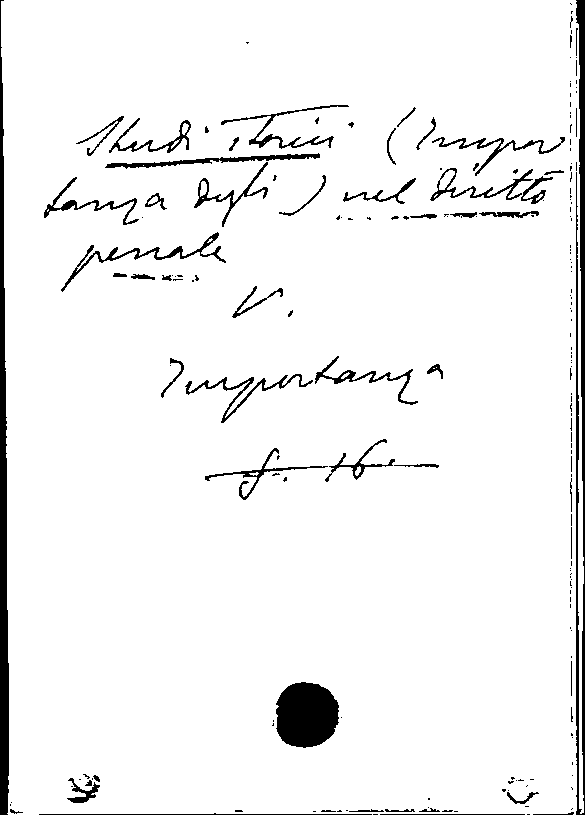 Studi storici (Impor
tanza degli) nel diritto
penale
V.
Importanza
f. 16.